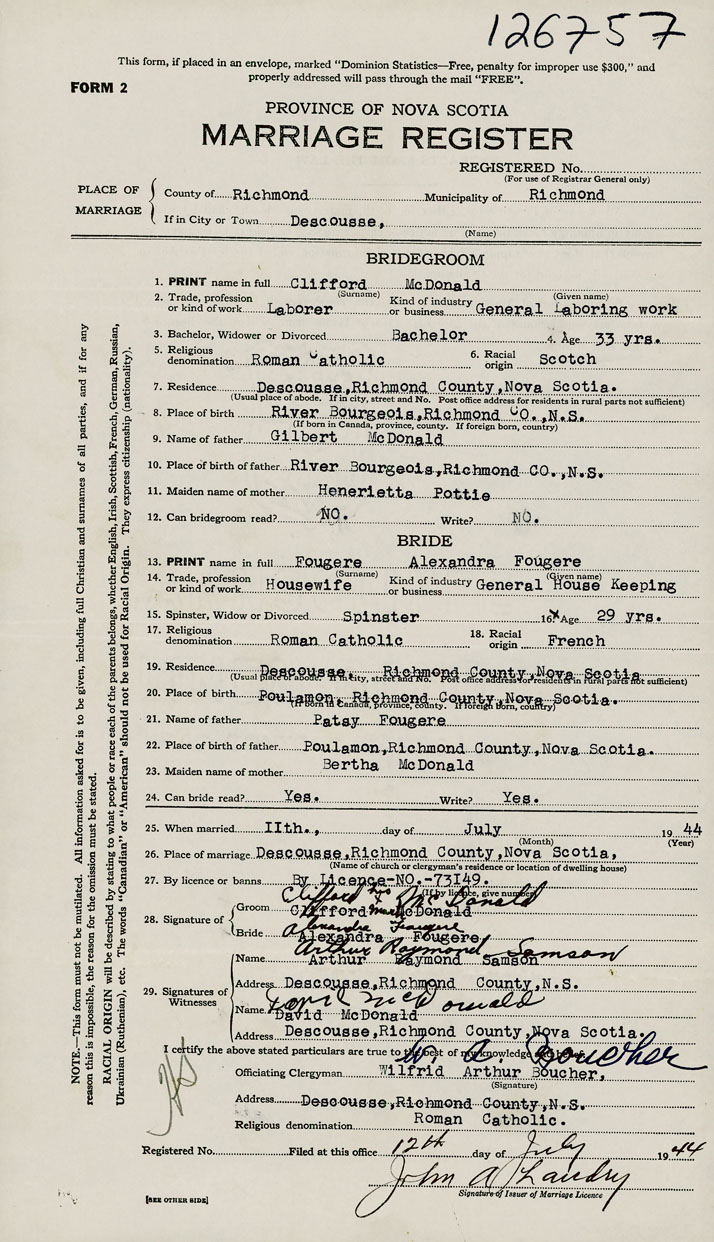 126757
This form, if placed in an envelope, marked "Dominion Statistics—Free, penalty for improper use $300," and
properly addressed will pass through the mail "FREE".
FORM 2
PROVINCE OF NOVA SCOTIA
MARRIAGE REGISTER
REGISTERED No.
(For use of Registrar General only)
PLACE OF MARRIAGE
County of Richmond Municipality of Richmond
If in City or Town Descousse,
(Name)
BRIDEGROOM
1. PRINT name in full Clifford McDonald
(Surname) (Given name)
2. Trade, profession or kind of work Laborer Kind of industry or business General Laboring work
3. Bachelor, Widower or Divorced Bachelor 4. Age 33 yrs.
5. Religious denomination Roman Catholic 6. Racial origin Scotch
7. Residence Descousse,Richmond County,Nova Scotia.
(Usual place of abode. If in city, street and No. Post office address for residents in rural parts not sufficient)
8. Place of birth River Bourgeois,Richmond CO.,N.S.
(If born in Canada, province, county. If foreign born, country)
9. Name of father Gilbert McDonald
10. Place of birth of father River Bourgeois,Richmond CO.,N.S.
11. Maiden name of mother Henerietta Pottie
12. Can bridegroom read? NO. Write? NO.
BRIDE
13. PRINT name in full Fougere Alexandra Fougere
(Surname) (Given name)
14. Trade, profession or kind of work Housewife Kind of industry or business General House Keeping
15. Spinster, Widow or Divorced Spinster 16. Age 29 yrs.
17. Religious denomination Roman Catholic 18. Racial origin French
19. Residence Descousse Richmond County,Nova Scotia
(Usual place of abode. If in city, street and No. Post office address for residents in rural parts not sufficient)
20. Place of birth Poulamon Richmond County,Nova Scotia.
(If born in Canada, province, county. If foreign born, country)
21. Name of father Patsy Fougere
22. Place of birth of father Poulamon,Richmond County,Nova Scotia.
23. Maiden name of mother Bertha McDonald
24. Can bride read? Yes. Write? Yes.
25. When married IIth., day of July 1944
(Month) (Year)
26. Place of marriage Descousse,Richmond County,Nova Scotia,
(Name of church or clergyman's residence or location of dwelling house)
27. By licence or banns By Licence-NO.-73I49.
(If by licence, give number)
Clifford his x McDonald
28. Signature of Groom Clifford mark McDonald
Alexandra Fougere
Bride Alexandra Fougere
Arthur Raymond Samson
29. Signatures of Witnesses
Name Arthur Raymond Samson
Address Descousse,Richmond County,N.S.
McDonald
Name David McDonald
Address Descousse,Richmond County,Nova Scotia.
I certify the above stated particulars are true to the best of my knowledge and belief.
W. A. Boucher
Officiating Clergyman Wilfrid Arthur Boucher,
(Signature)
Address Descousse,Richmond County,N.S.
Religious denomination Roman Catholic.
Registered No. Filed at this office 12th day of July 1944
John A Landry
Signature of Issuer of Marriage Licence
[SEE OTHER SIDE]
NOTE.—This form must not be mutilated. All information asked for is to be given, including full Christian and surnames of all parties, and if for any
reason this is impossible, the reason for the omission must be stated.
RACIAL ORIGIN will be described by stating to what people or race each of the parents belongs, whether English, Irish, Scottish, French, German, Russian,
Ukrainian (Ruthenian), etc. The words "Canadian" or "American" should not be used for Racial Origin. They express citizenship (nationality).